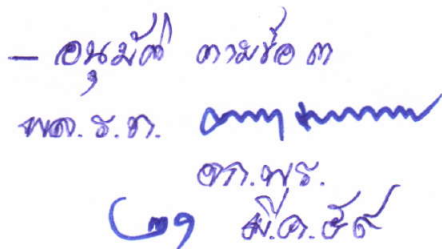 - อนุมัติ ตามข้อ ๓
พล.ร.ท.
จก.พร.
๒๑ มี.ค. ๕๙